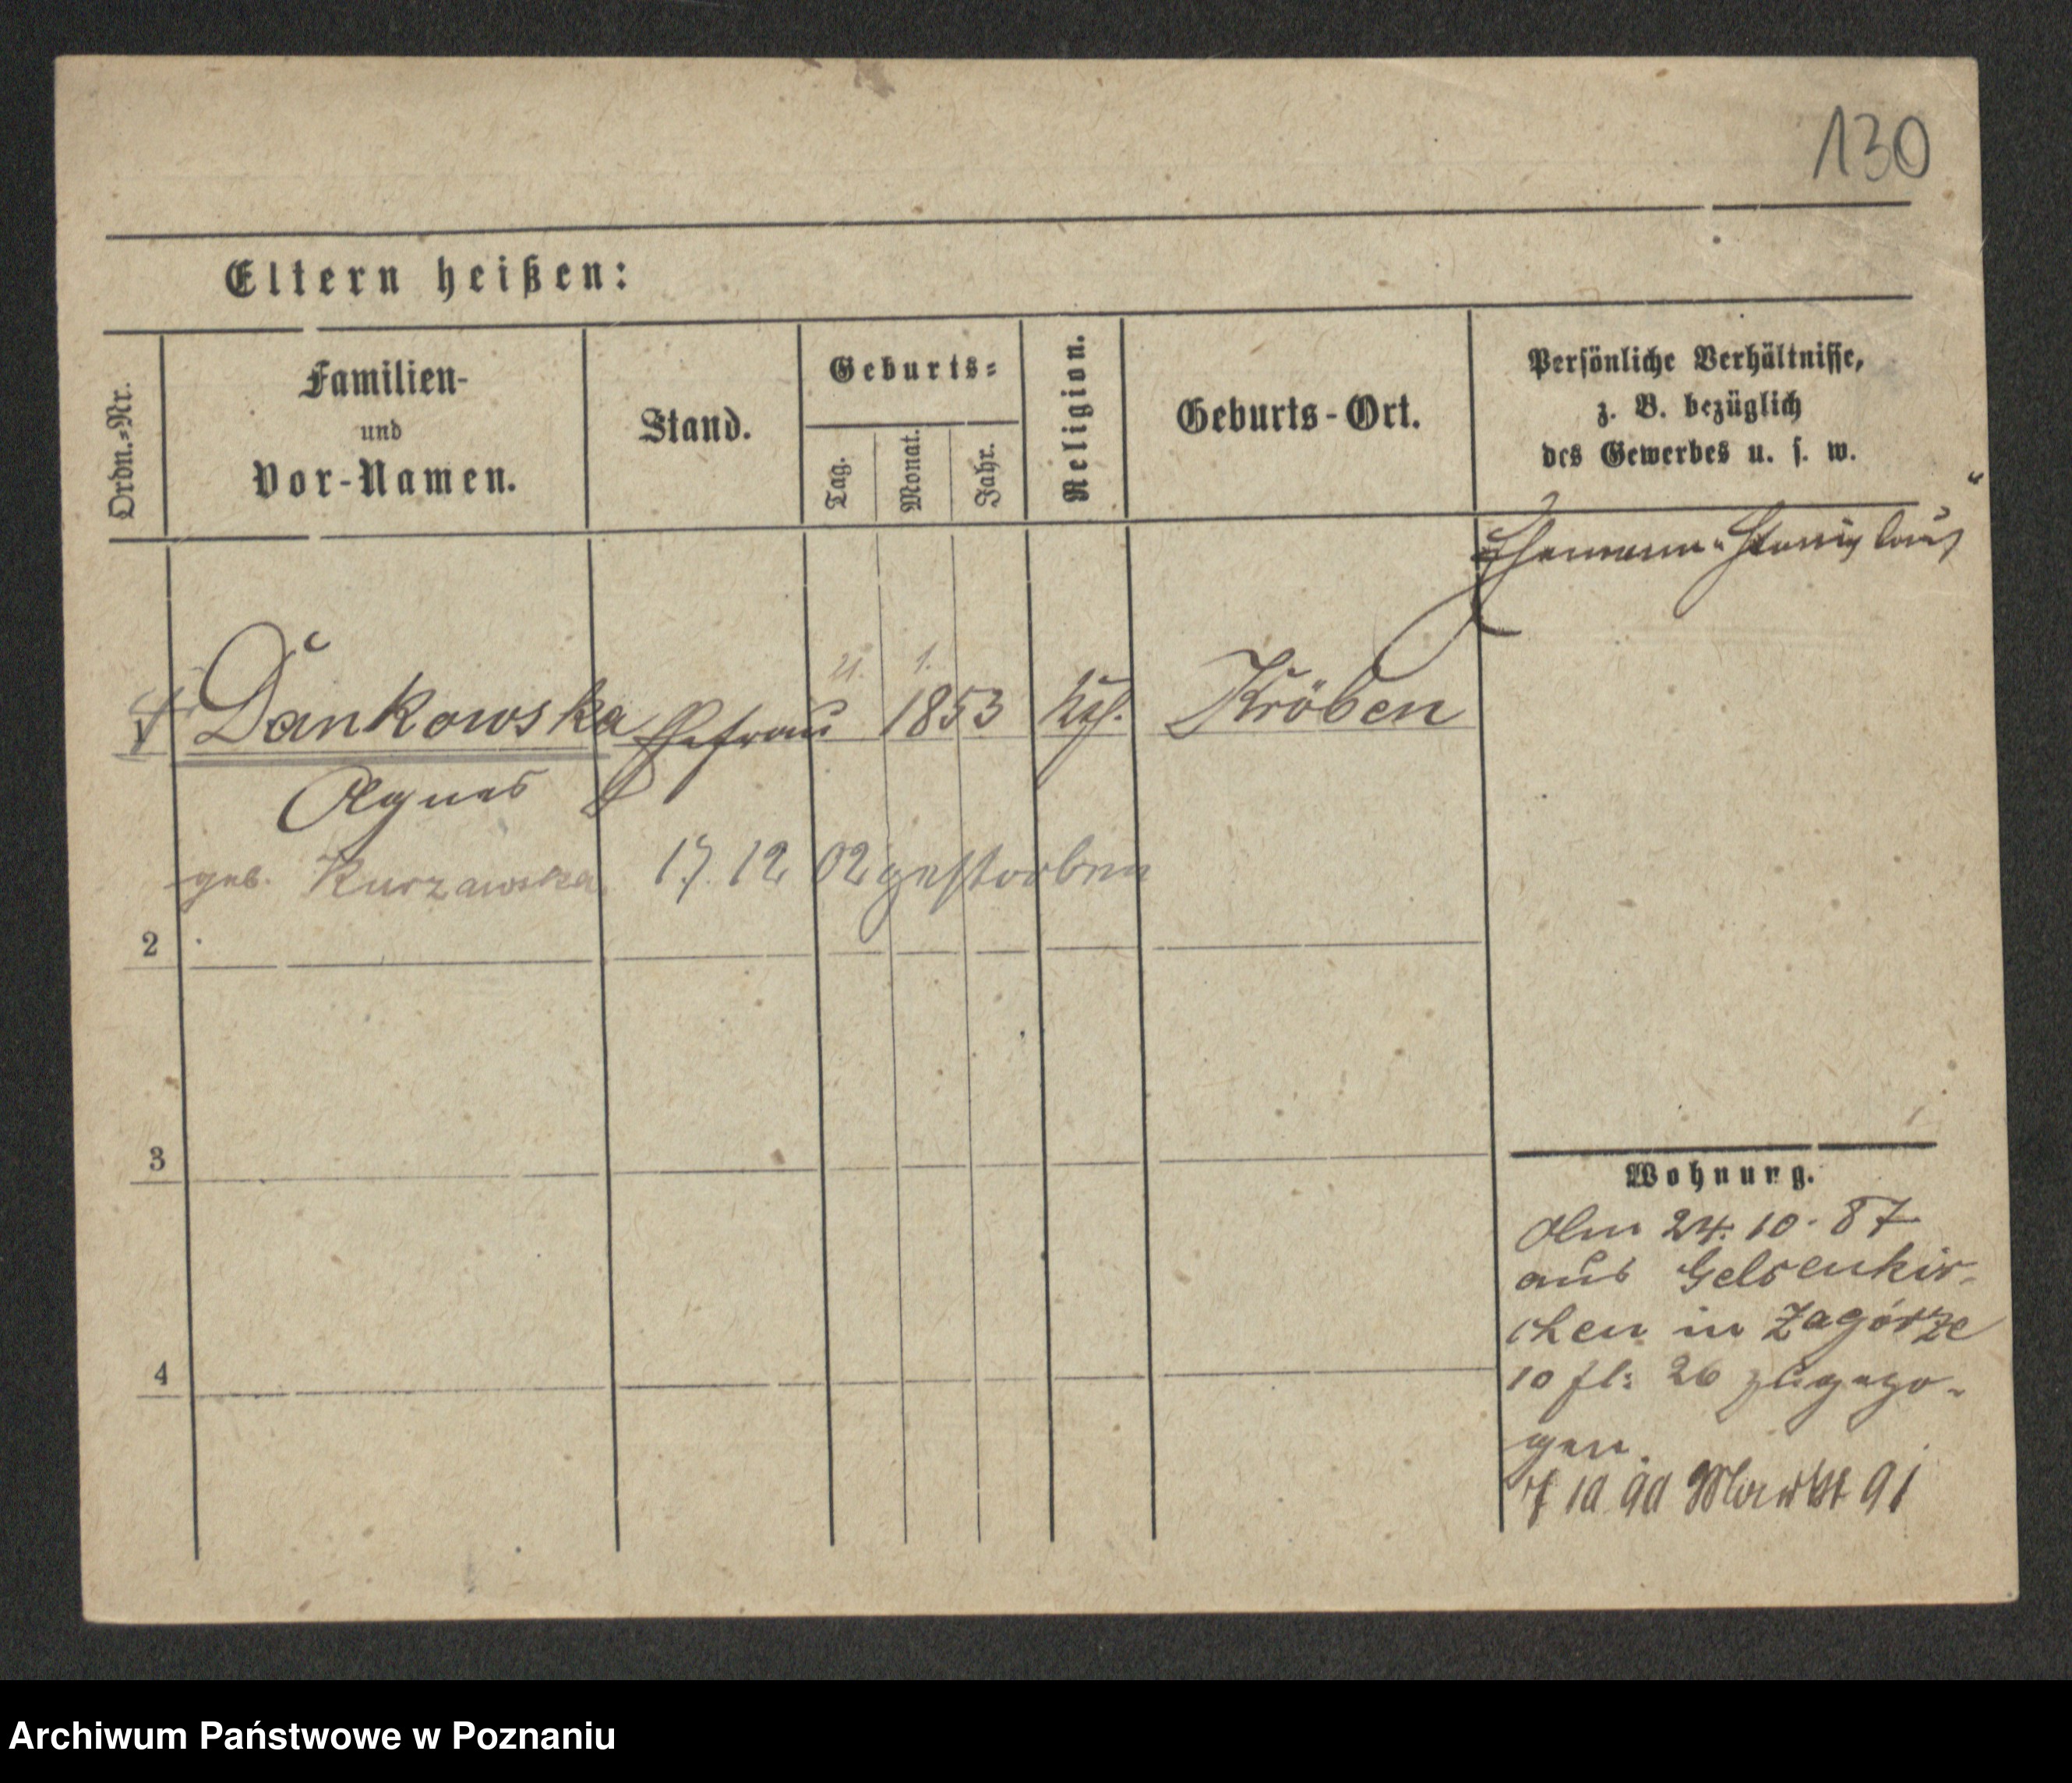 130
Eltern heißen:
Ordn.-Nr.
Familien-
und
Vor-Namen.
Stand.
Geburts-
Tag.
Monat.
Jahr.
Religion.
Geburts-Ort.
Persönliche Verhältnisse,
z. B. bezüglich
des Gewerbes u. s. w.
Ehemann "Stanislaus"
21. 1.
Dankowska Ehefrau 1853 kth. Kröben
Agnes
geb. Kurzawska 17. 12. 02 gestorben
2
3
4
Wohnung.
Am 24. 10. 87
aus Gelsenkir-
chen in Zagórze
10 fl: 26 zugezo-
gen.
Markt 91
Archiwum Państwowe w Poznaniu